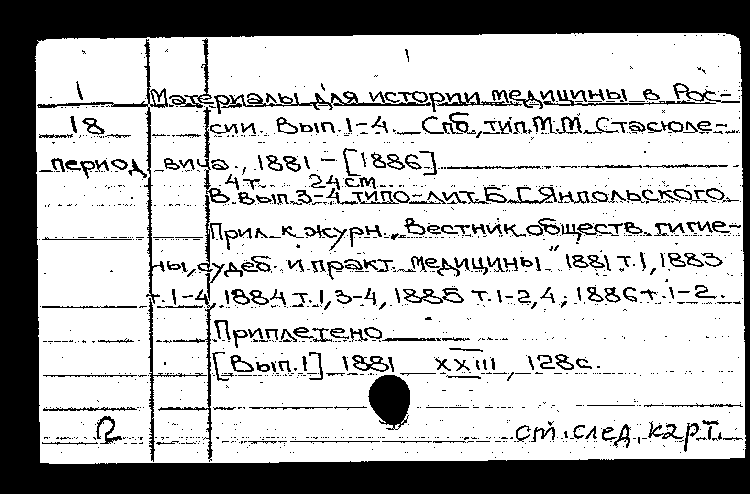 1 Материалы для истории медицины в Рос-
18 сии. Вып. 1-4. Спб, тип. М.М. Стасюле-
период вича, 1881 - [1886]
4 т. 24 см
В вып. 3-4 типо-лит. Б.Г. Янпольского.
Прил. к журн. "Вестник обществ. гигие-
ны, судеб. и практ. медицины" 1881 т. 1, 1883
т. 1-4, 1884 т. 1, 3-4, 1885 т. 1-2, 4, 1886 т. 1-2.
Приплетено
[Вып. 1] 1881 XXIII, 128 с.
см. след. карт.